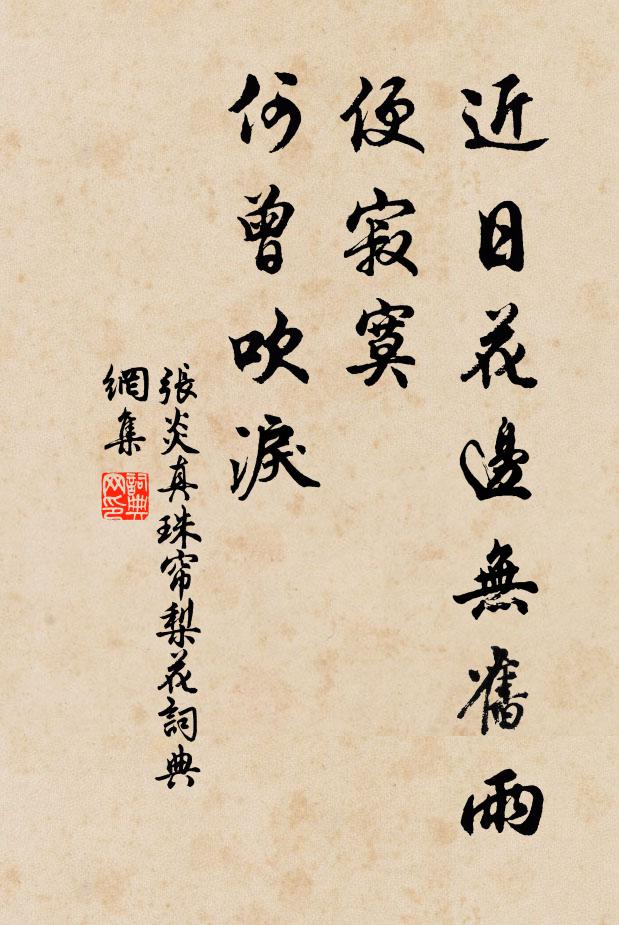 近日花邊無舊雨
便寂寞
何曾吹淚
張炎真珠帘梨花詞典
網集
詞典
网印